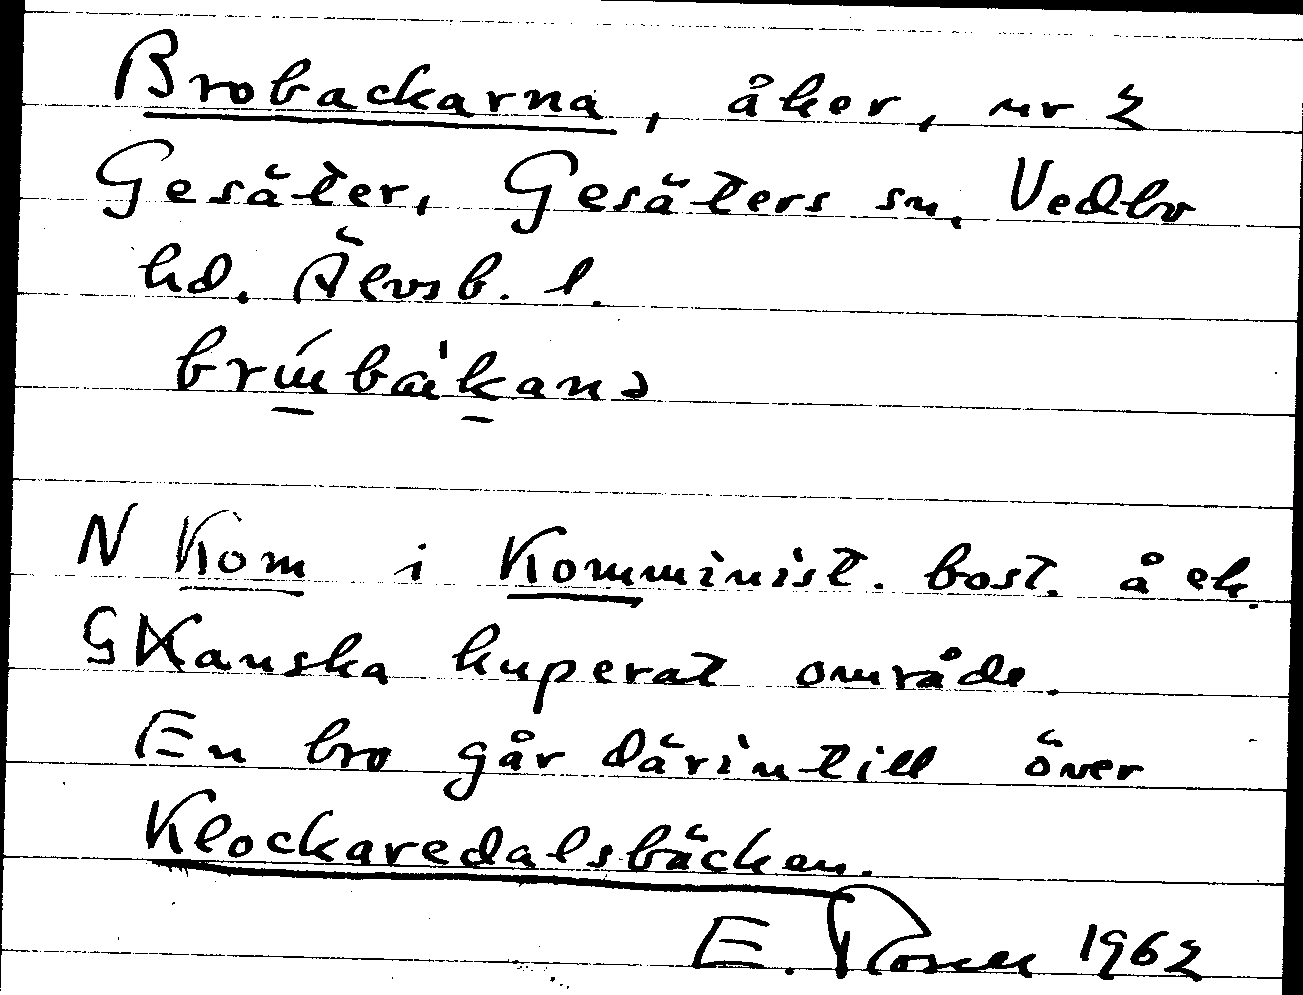 Brobackarna, åker, nr 2
Gesäter, Gesäters sn. Vedbo
hd. Älvsb. l.
N Kom i Komminist. bost. å ek.
G Kanska kuperat område.
En bro går därintill över
Klockaredalsbäcken.
E. Rosell 1962